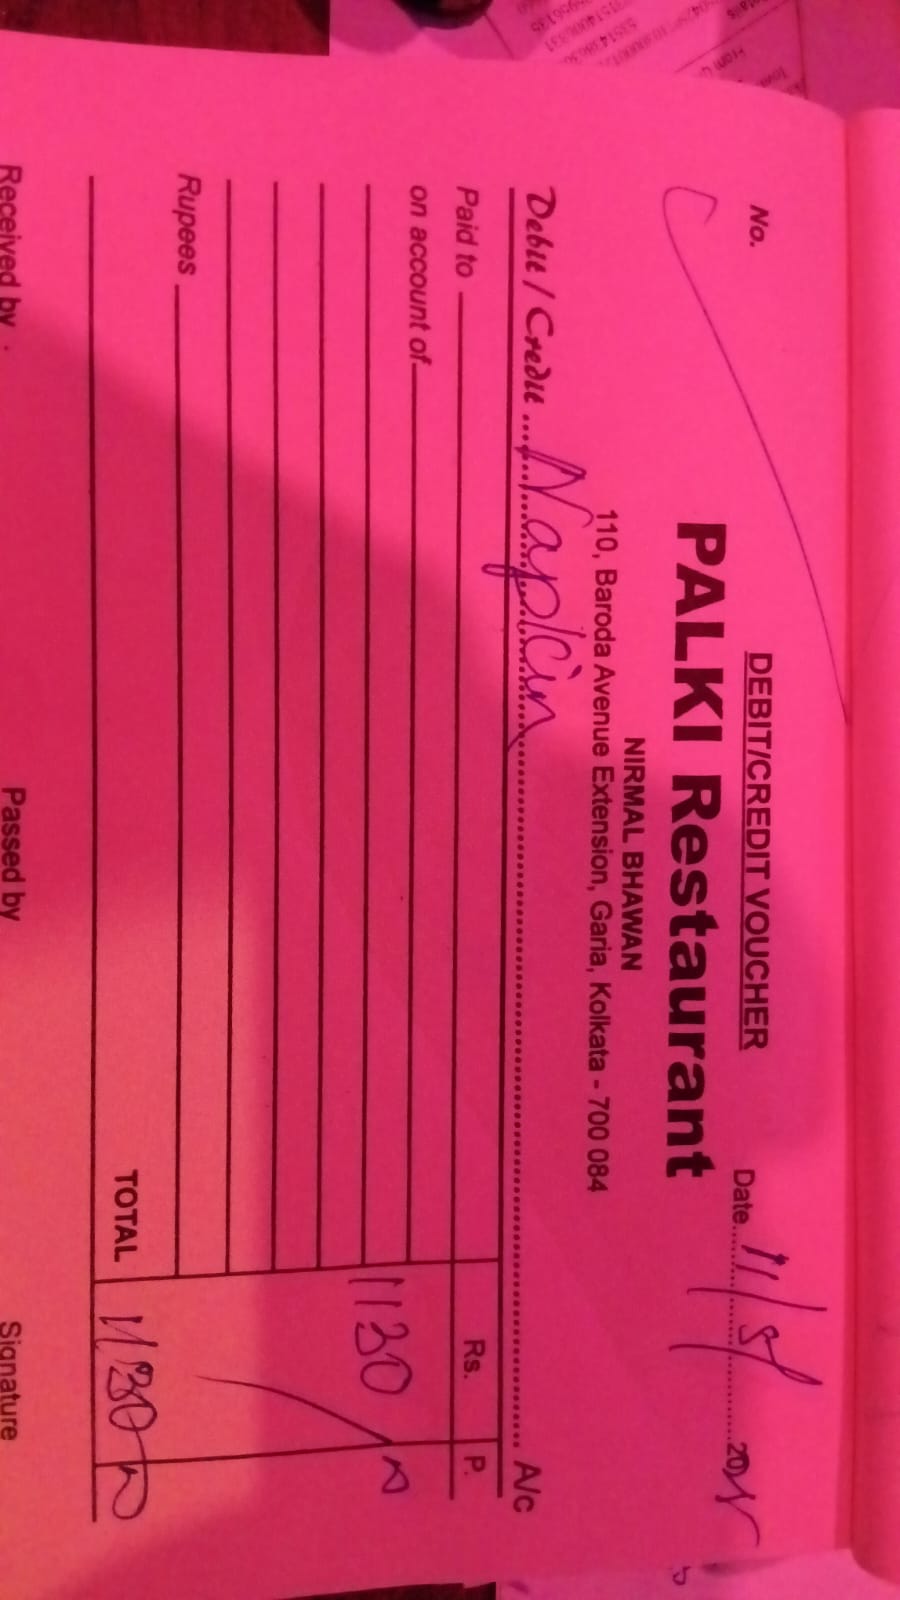 No.
DEBIT/CREDIT VOUCHER
Date
PALKI Restaurant
NIRMAL BHAWAN
110, Baroda Avenue Extension, Garia, Kolkata - 700 084
Debit / Credit Napkin A/c
Paid to Rs. P.
on account of
1130/
Rupees
TOTAL 1130
Received by Passed by Signature